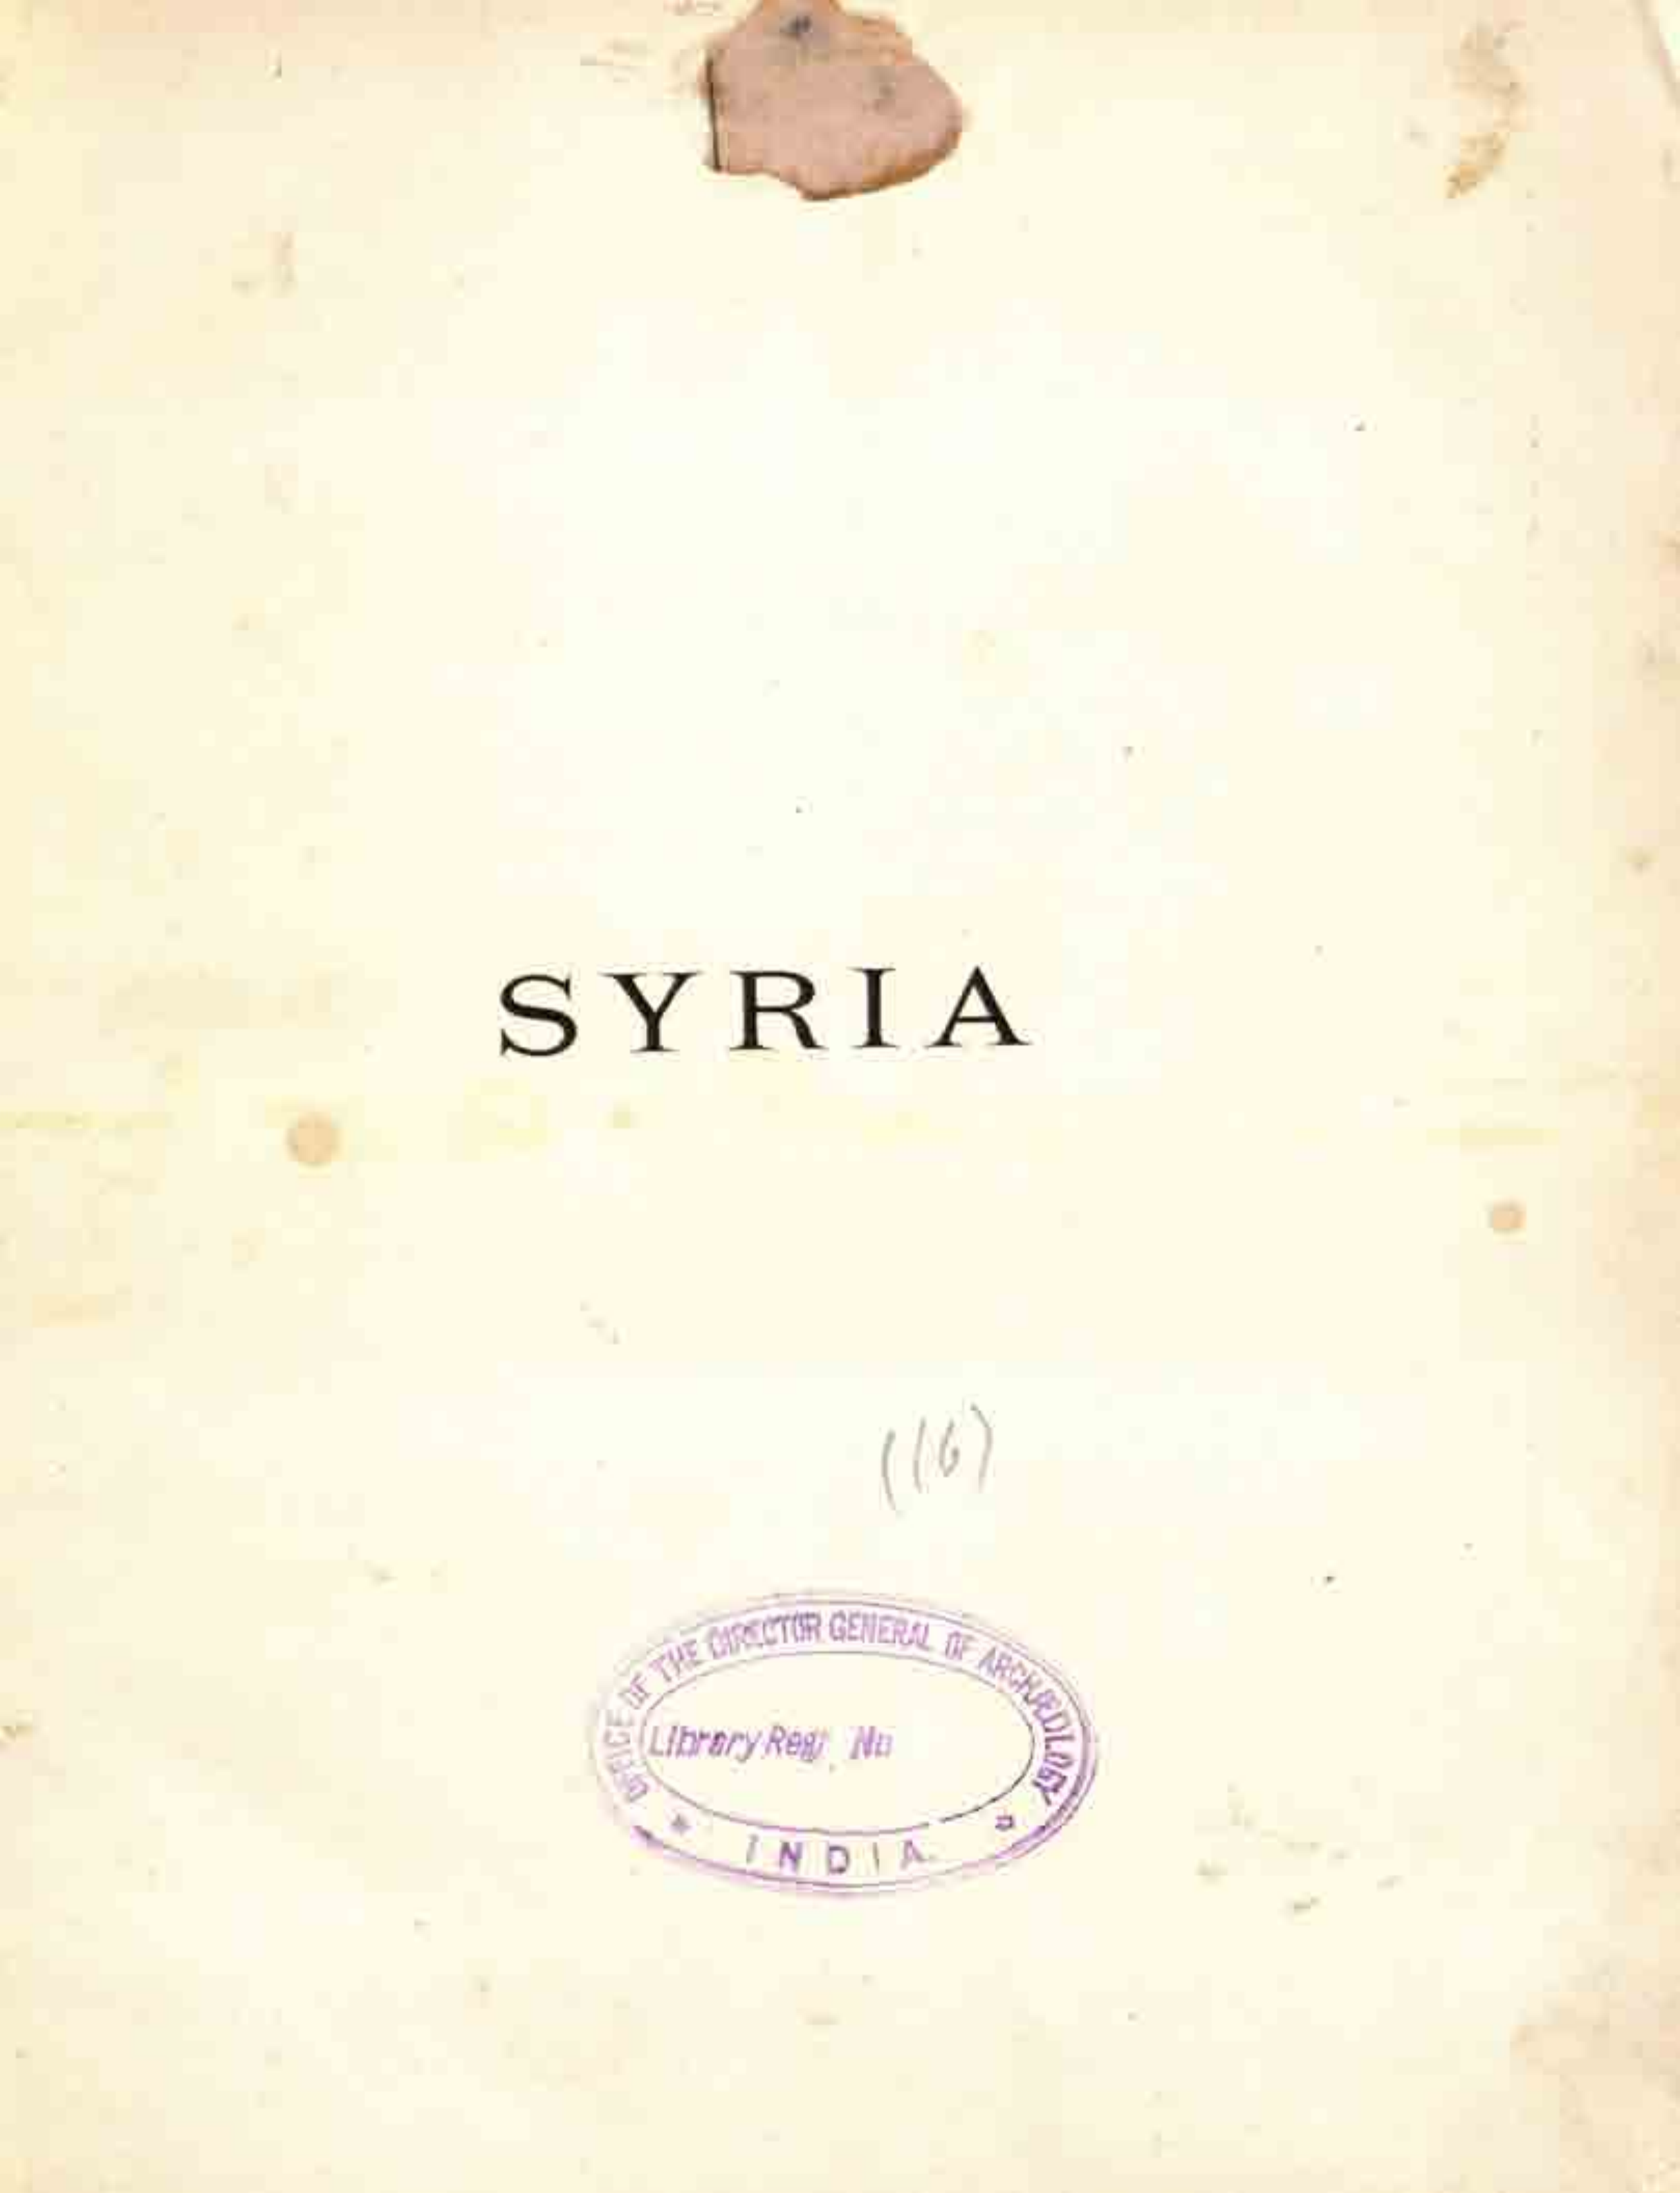 SYRIA
(16)
OFFICE OF THE DIRECTOR GENERAL OF ARCHÆOLOGY
Library Reg. No
INDIA.